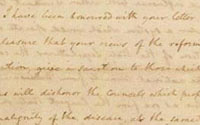 I have been honoured with your letter
pleasure that your views of the reform
ction, give a sanction to those which
s will dishonor the Councils which prof
malignity of the disease. As the same